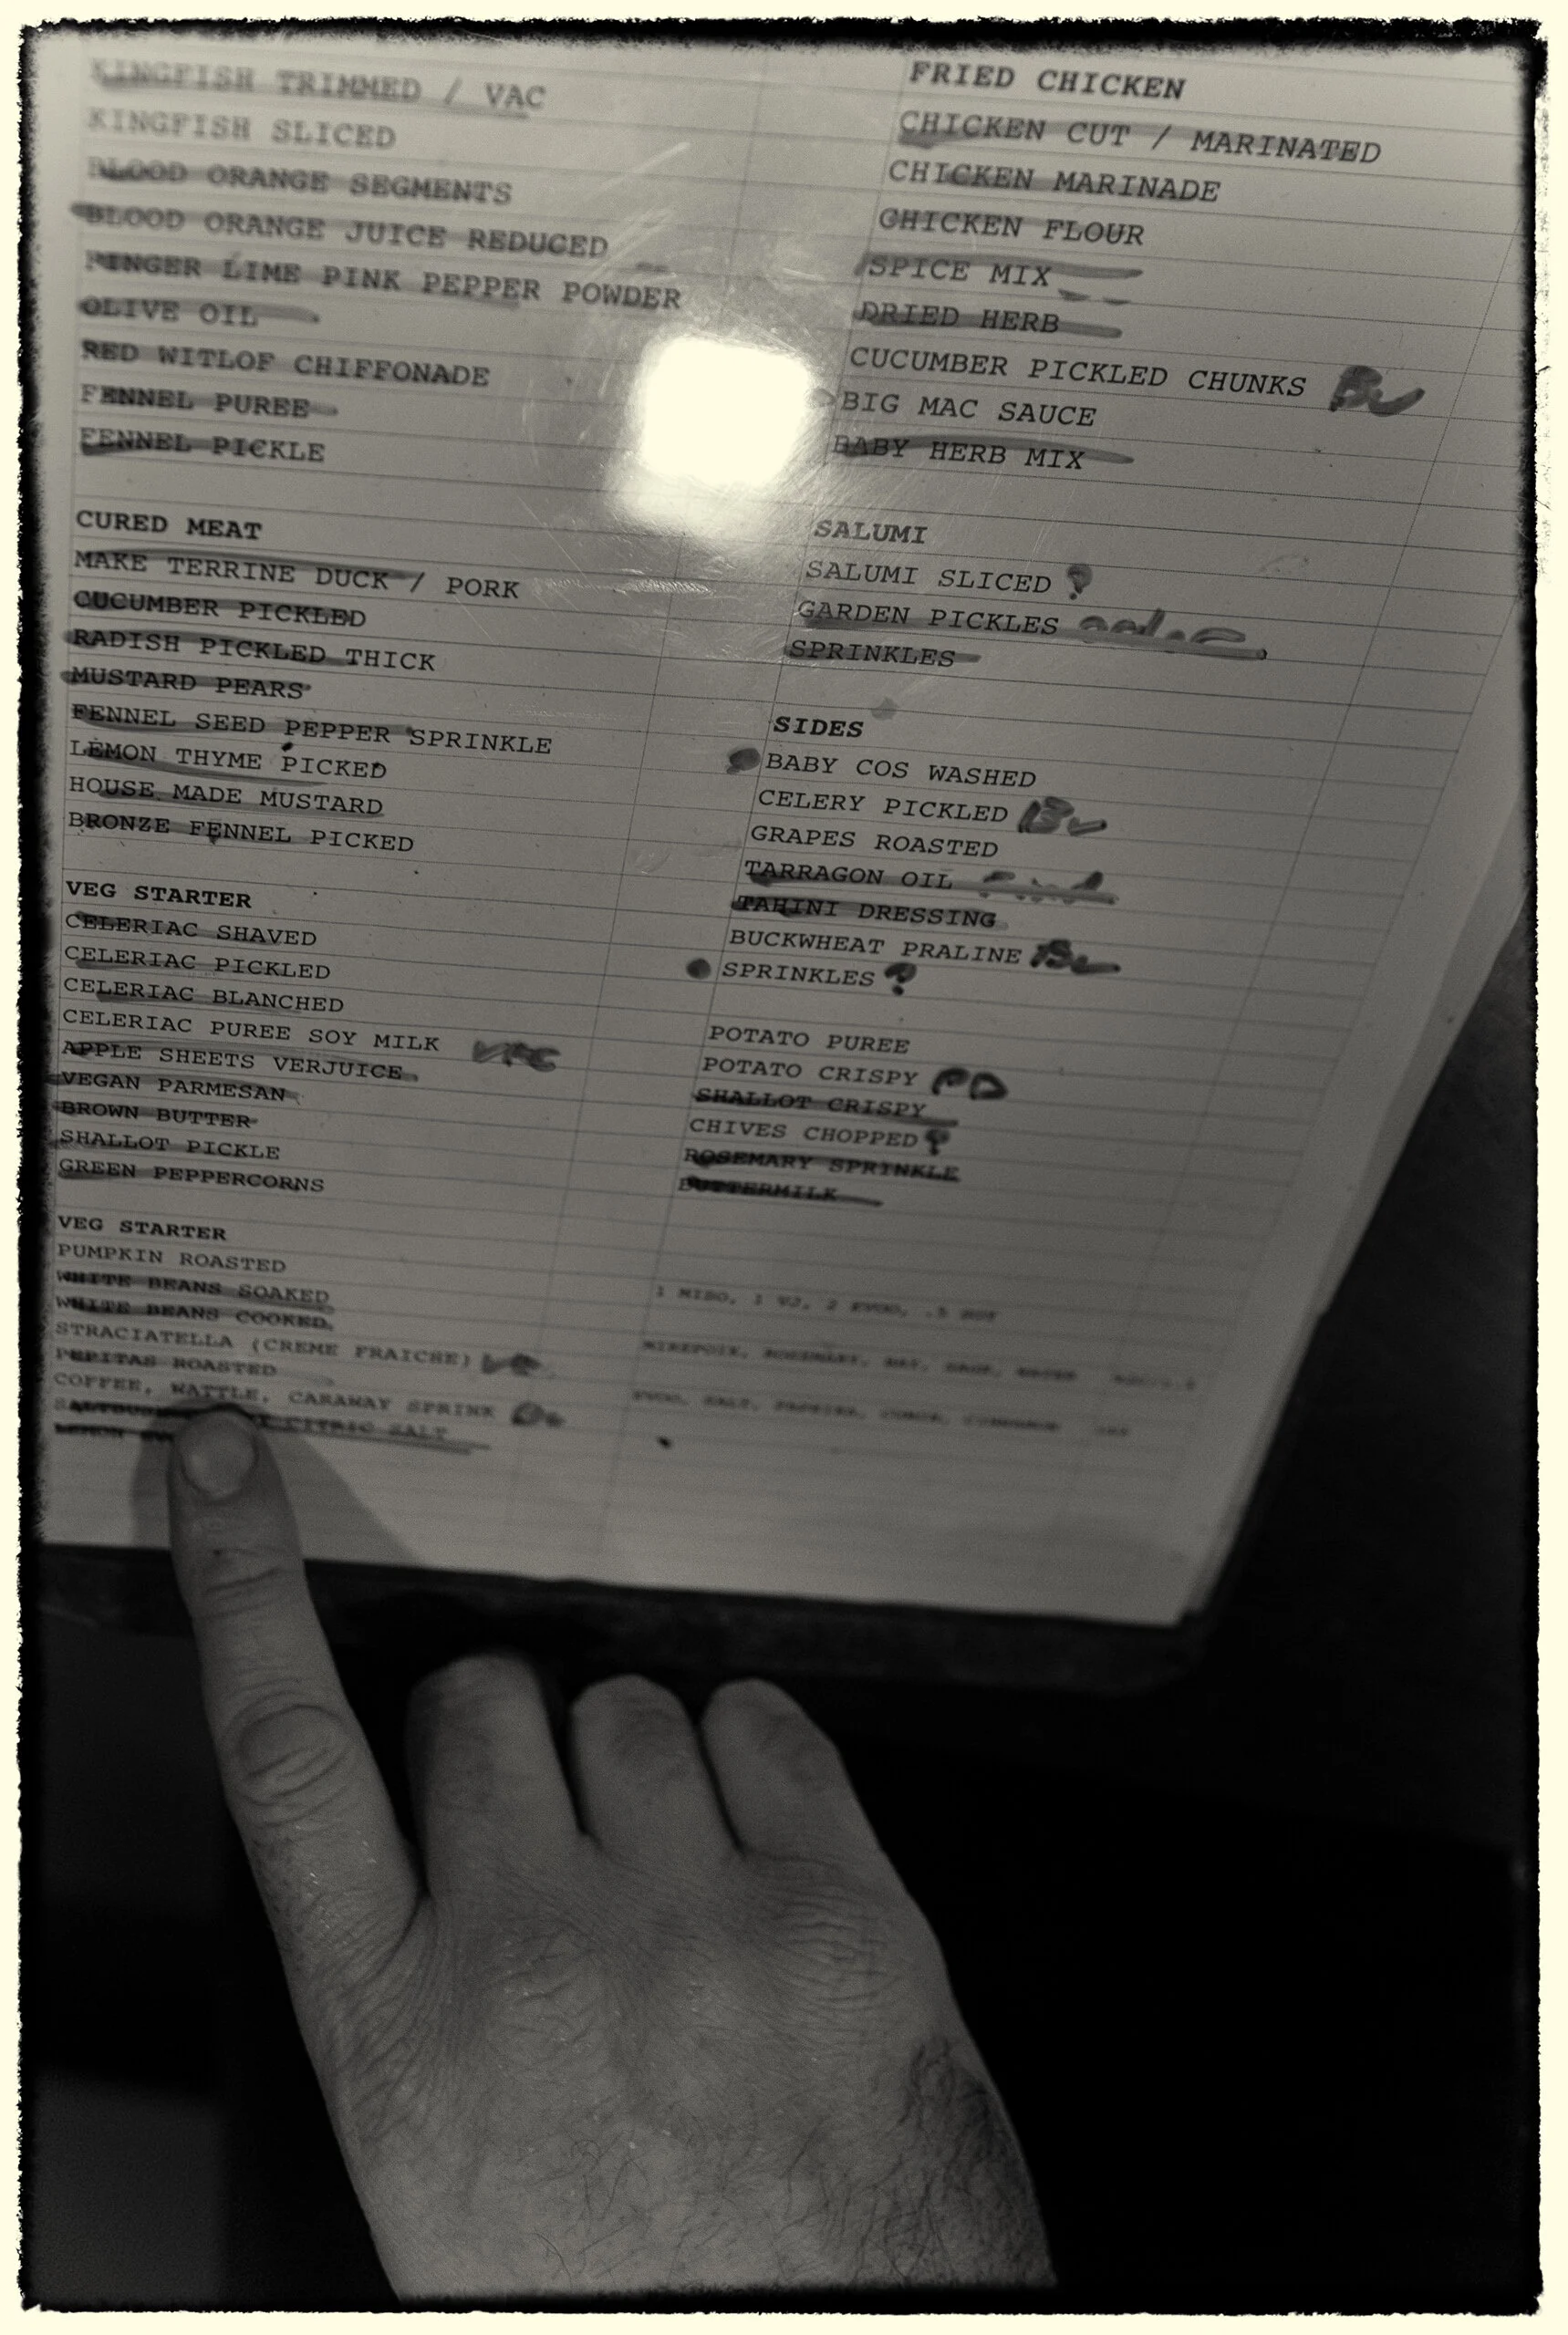 KINGFISH TRIMMED / VAC
KINGFISH SLICED
BLOOD ORANGE SEGMENTS
BLOOD ORANGE JUICE REDUCED
FINGER LIME PINK PEPPER POWDER
OLIVE OIL
RED WITLOF CHIFFONADE
FENNEL PUREE
FENNEL PICKLE
CURED MEAT
MAKE TERRINE DUCK / PORK
CUCUMBER PICKLED
RADISH PICKLED THICK
MUSTARD PEARS
FENNEL SEED PEPPER SPRINKLE
LEMON THYME PICKED
HOUSE MADE MUSTARD
BRONZE FENNEL PICKED
VEG STARTER
CELERIAC SHAVED
CELERIAC PICKLED
CELERIAC BLANCHED
CELERIAC PUREE SOY MILK
APPLE SHEETS VERJUICE
VEGAN PARMESAN
BROWN BUTTER
SHALLOT PICKLE
GREEN PEPPERCORNS
VEG STARTER
PUMPKIN ROASTED
WHITE BEANS SOAKED
WHITE BEANS COOKED
STRACIATELLA (CREME FRAICHE)
PEPITAS ROASTED
COFFEE, WATTLE, CARAWAY SPRINK
CITRIC SALT
LEMON
FRIED CHICKEN
CHICKEN CUT / MARINATED
CHICKEN MARINADE
CHICKEN FLOUR
SPICE MIX
DRIED HERB
CUCUMBER PICKLED CHUNKS
BIG MAC SAUCE
BABY HERB MIX
SALUMI
SALUMI SLICED ?
GARDEN PICKLES
SPRINKLES
SIDES
BABY COS WASHED
CELERY PICKLED
GRAPES ROASTED
TARRAGON OIL
TAHINI DRESSING
BUCKWHEAT PRALINE
SPRINKLES ?
POTATO PUREE
POTATO CRISPY
SHALLOT CRISPY
CHIVES CHOPPED ?
ROSEMARY SPRINKLE
BUTTERMILK
1 MISO, 1 VJ, 2 EVOO, .5 SOY